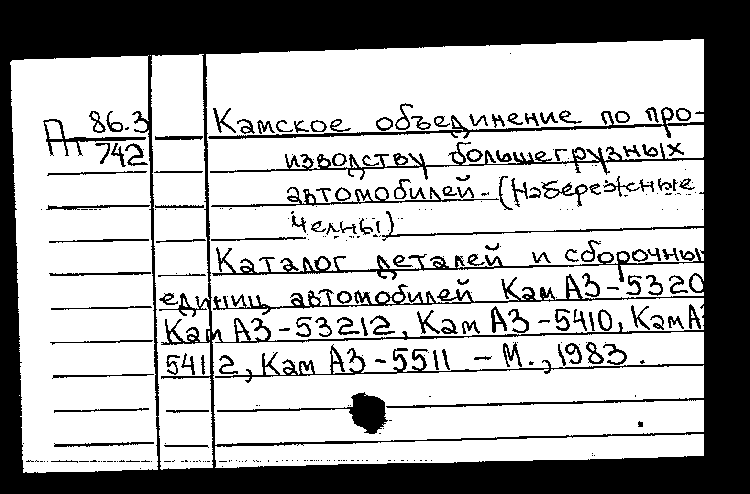 Пт 86.3
742
Камское объединение по про-
изводству большегрузных
автомобилей-(Набережные
Челны)
Каталог деталей и сборочны
единиц автомобилей КамАЗ-5320
КамАЗ-53212, КамАЗ-5410, КамАЗ
5412, КамАЗ-5511 - М., 1983.